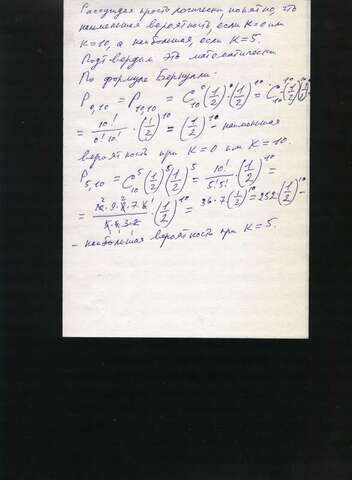 Рассуждая просто логически понятно, что
наименьшая вероятность если K=0 или
K=10, а наибольшая, если K=5.
Подтвердим это математически
По формуле Бернулли:
P₀,₁₀ = P₁₀,₁₀ = C₁₀⁰(1/2)⁰·(1/2)¹⁰ = C₁₀¹⁰(1/2)¹⁰(1/2)⁰
= 10!/0!10! · (1/2)¹⁰ = (1/2)¹⁰ - наименьшая
вероятность при K=0 или K=10.
P₅,₁₀ = C₁₀⁵(1/2)⁵(1/2)⁵ = 10!/5!5! · (1/2)¹⁰ =
= 10·9·8·7·6/5·4·3·2 · (1/2)¹⁰ = 36·7(1/2)¹⁰ = 252(1/2)¹⁰ -
- наибольшая вероятность при K=5.